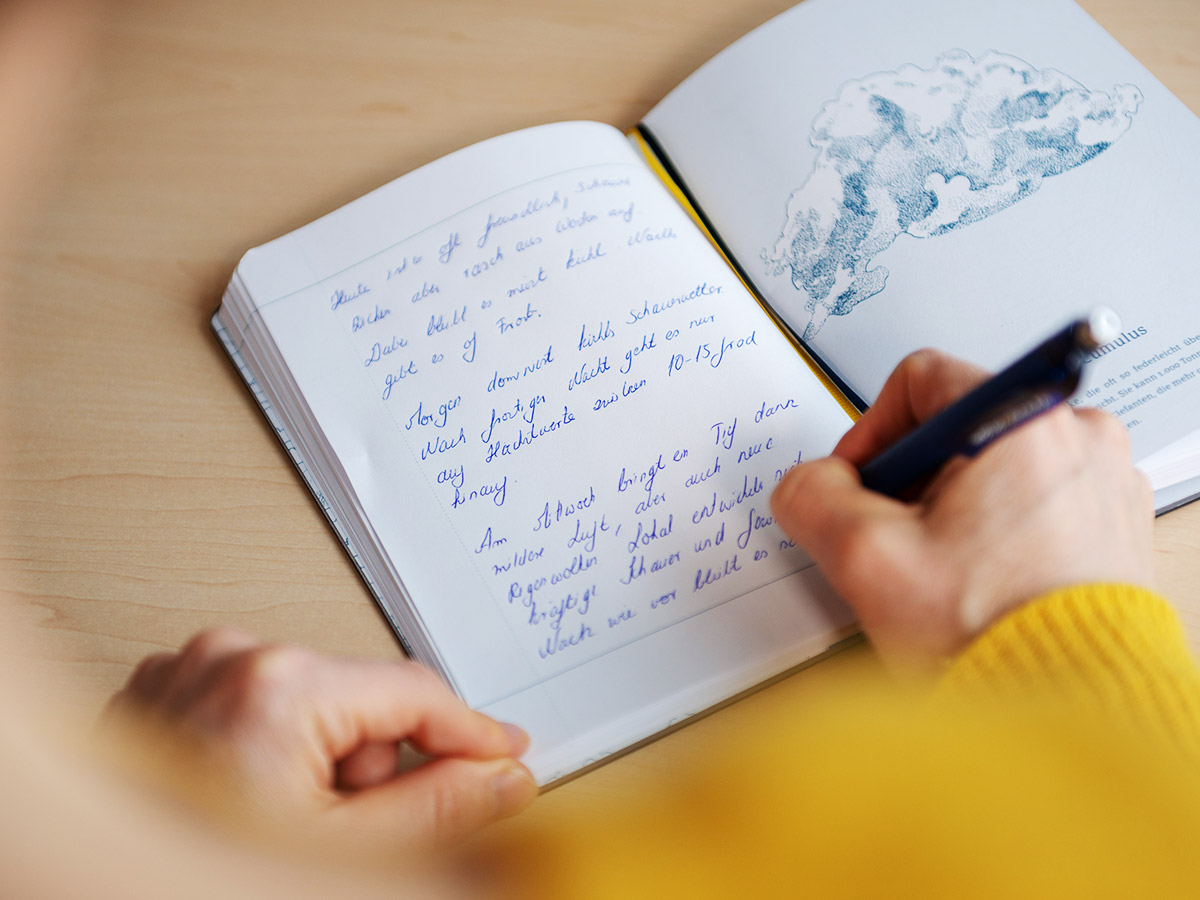 Heute ist es oft freundlich, Schauer
Bichen aber rasch aus Westen auf.
Dabei bleibt es meist kühl. Nachts
gibt es of Frost.
Morgen dominiert kühles Schauerwetter
Nach frostiger Nacht geht es nur
auf Höchstwerte zwischen 10-15 Grad
hinauf.
Am Mittwoch bringt ein Tief dann
mildere Luft, aber auch neue
Regenwolken. Lokal entwickeln
kräftige Schauer und
Nach wie vor bleibt es
umulus
die oft so federleicht übe
icht. Sie kann 1.000 Ton
lefanten, die mehr
en.